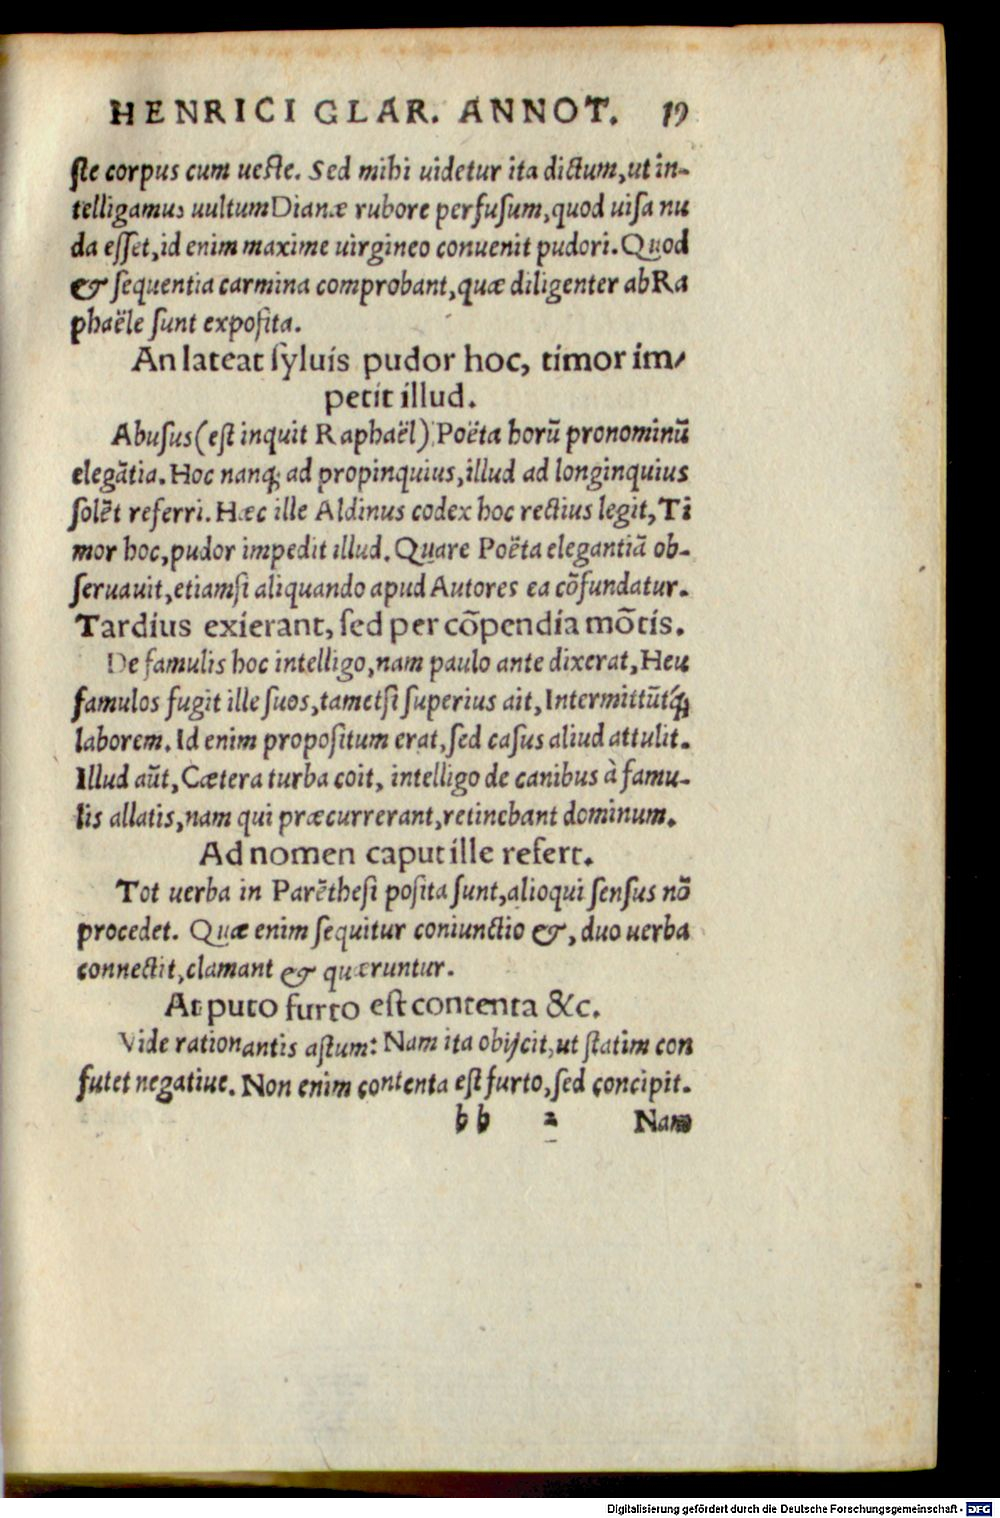 HENRICI GLAR. ANNOT. 19
ste corpus cum ueste. Sed mihi uidetur ita dictum, ut in-
telligamus uultum Dianæ rubore perfusum, quod uisa nu
da esset, id enim maxime uirgineo conuenit pudori. Quod
& sequentia carmina comprobant, quæ diligenter ab Ra
phaële sunt exposita.
An lateat syluis pudor hoc, timor im-
petit illud.
Abusus (est inquit Raphaël) Poëta horū pronominū
elegātia. Hoc nanq; ad propinquius, illud ad longinquius
solēt referri. Hæc ille Aldinus codex hoc rectius legit, Ti
mor hoc, pudor impedit illud. Quare Poëta elegantiā ob-
seruauit, etiamsi aliquando apud Autores ea cōfundatur.
Tardius exierant, sed per cōpendia mōtis.
De famulis hoc intelligo, nam paulo ante dixerat, Heu
famulos fugit ille suos, tametsi superius ait, Intermittūtq́;
laborem. Id enim propositum erat, sed casus aliud attulit.
Illud aūt, Cætera turba coit, intelligo de canibus à famu-
lis allatis, nam qui præcurrerant, retinebant dominum.
Ad nomen caput ille refert.
Tot uerba in Parēthesi posita sunt, alioqui sensus nō
procedet. Quæ enim sequitur coniunctio &, duo uerba
connectit, clamant & quæruntur.
At puto furto est contenta &c.
Vide rationantis astum: Nam ita obijcit, ut statim con
futet negatiue. Non enim contenta est furto, sed concipit.
bb 2 Nam
Digitalisierung gefördert durch die Deutsche Forschungsgemeinschaft - DFG